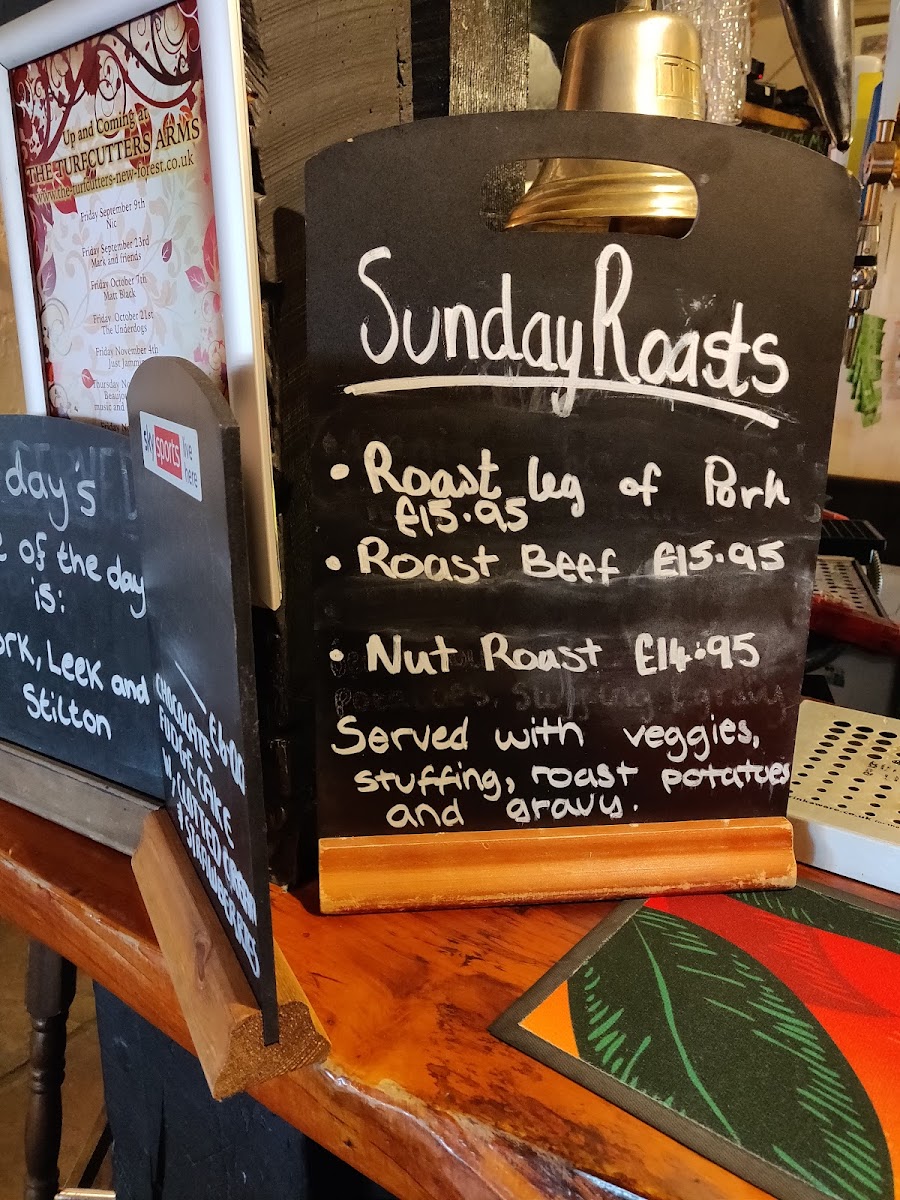 Up and Coming at
THE TURFCUTTERS ARMS
www.the-turfcutters-new-forest.co.uk
Friday September 9th
Nic
Friday September 23rd
Mark and friends
Friday October 7th
Matt Black
Friday October 21st
The Underdogs
Friday November 4th
Just Jammin
Thursday No
Beaujo
music and
day's
of the day
is:
ork, Leek and
Stilton
sky sports live
here
CHOCOLATE
FUDGE CAKE
W. CLOTTED CREAM
& STRAWBERRIES
Sunday Roasts
• Roast leg of Pork
£15.95
• Roast Beef £15.95
• Nut Roast £14.95
Served with veggies,
stuffing, roast potatoes
and gravy.